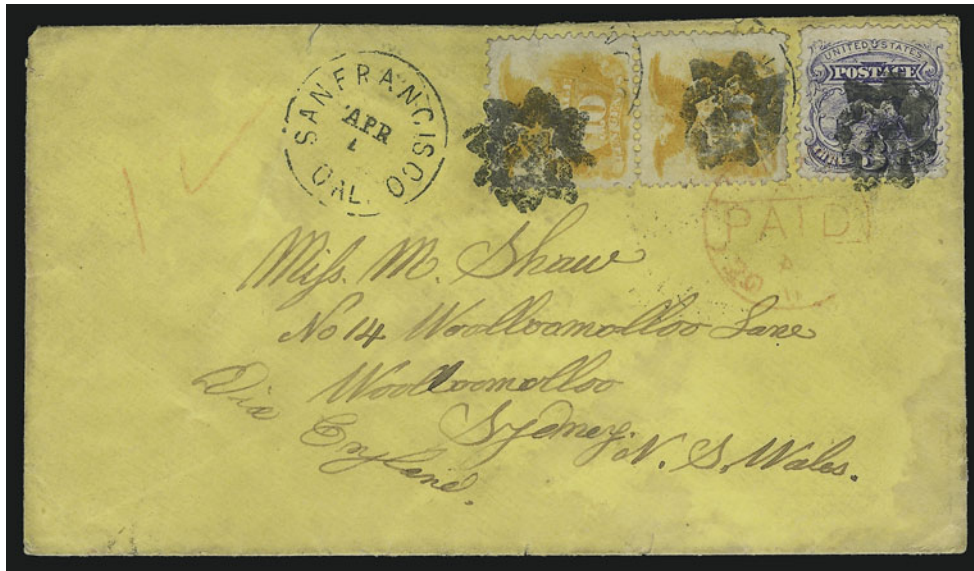 SAN FRANCISCO
APR
1
CAL.
UNITED STATES
POSTAGE
PAID
Miss. M. Shaw
No 14 Woolloomolloo Lane
Woolloomolloo
Sydney. N. S. Wales.
Via
England.